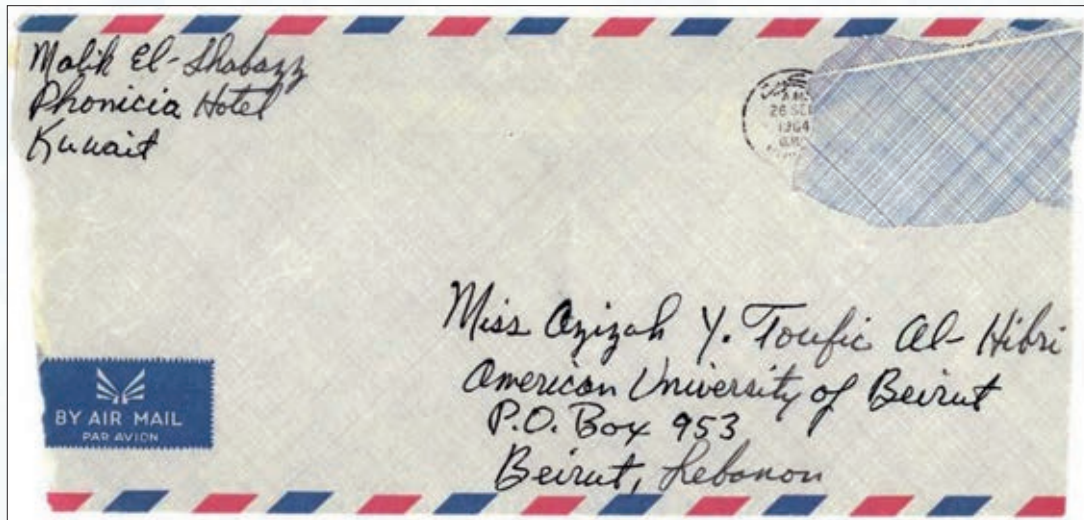 Malik El-Shabazz
Phonicia Hotel
Kuwait
26 SE
1964
Miss Azizah Y. Toufic Al-Hibri
American University of Beirut
P.O. Box 953
Beirut, Lebanon
BY AIR MAIL
PAR AVION